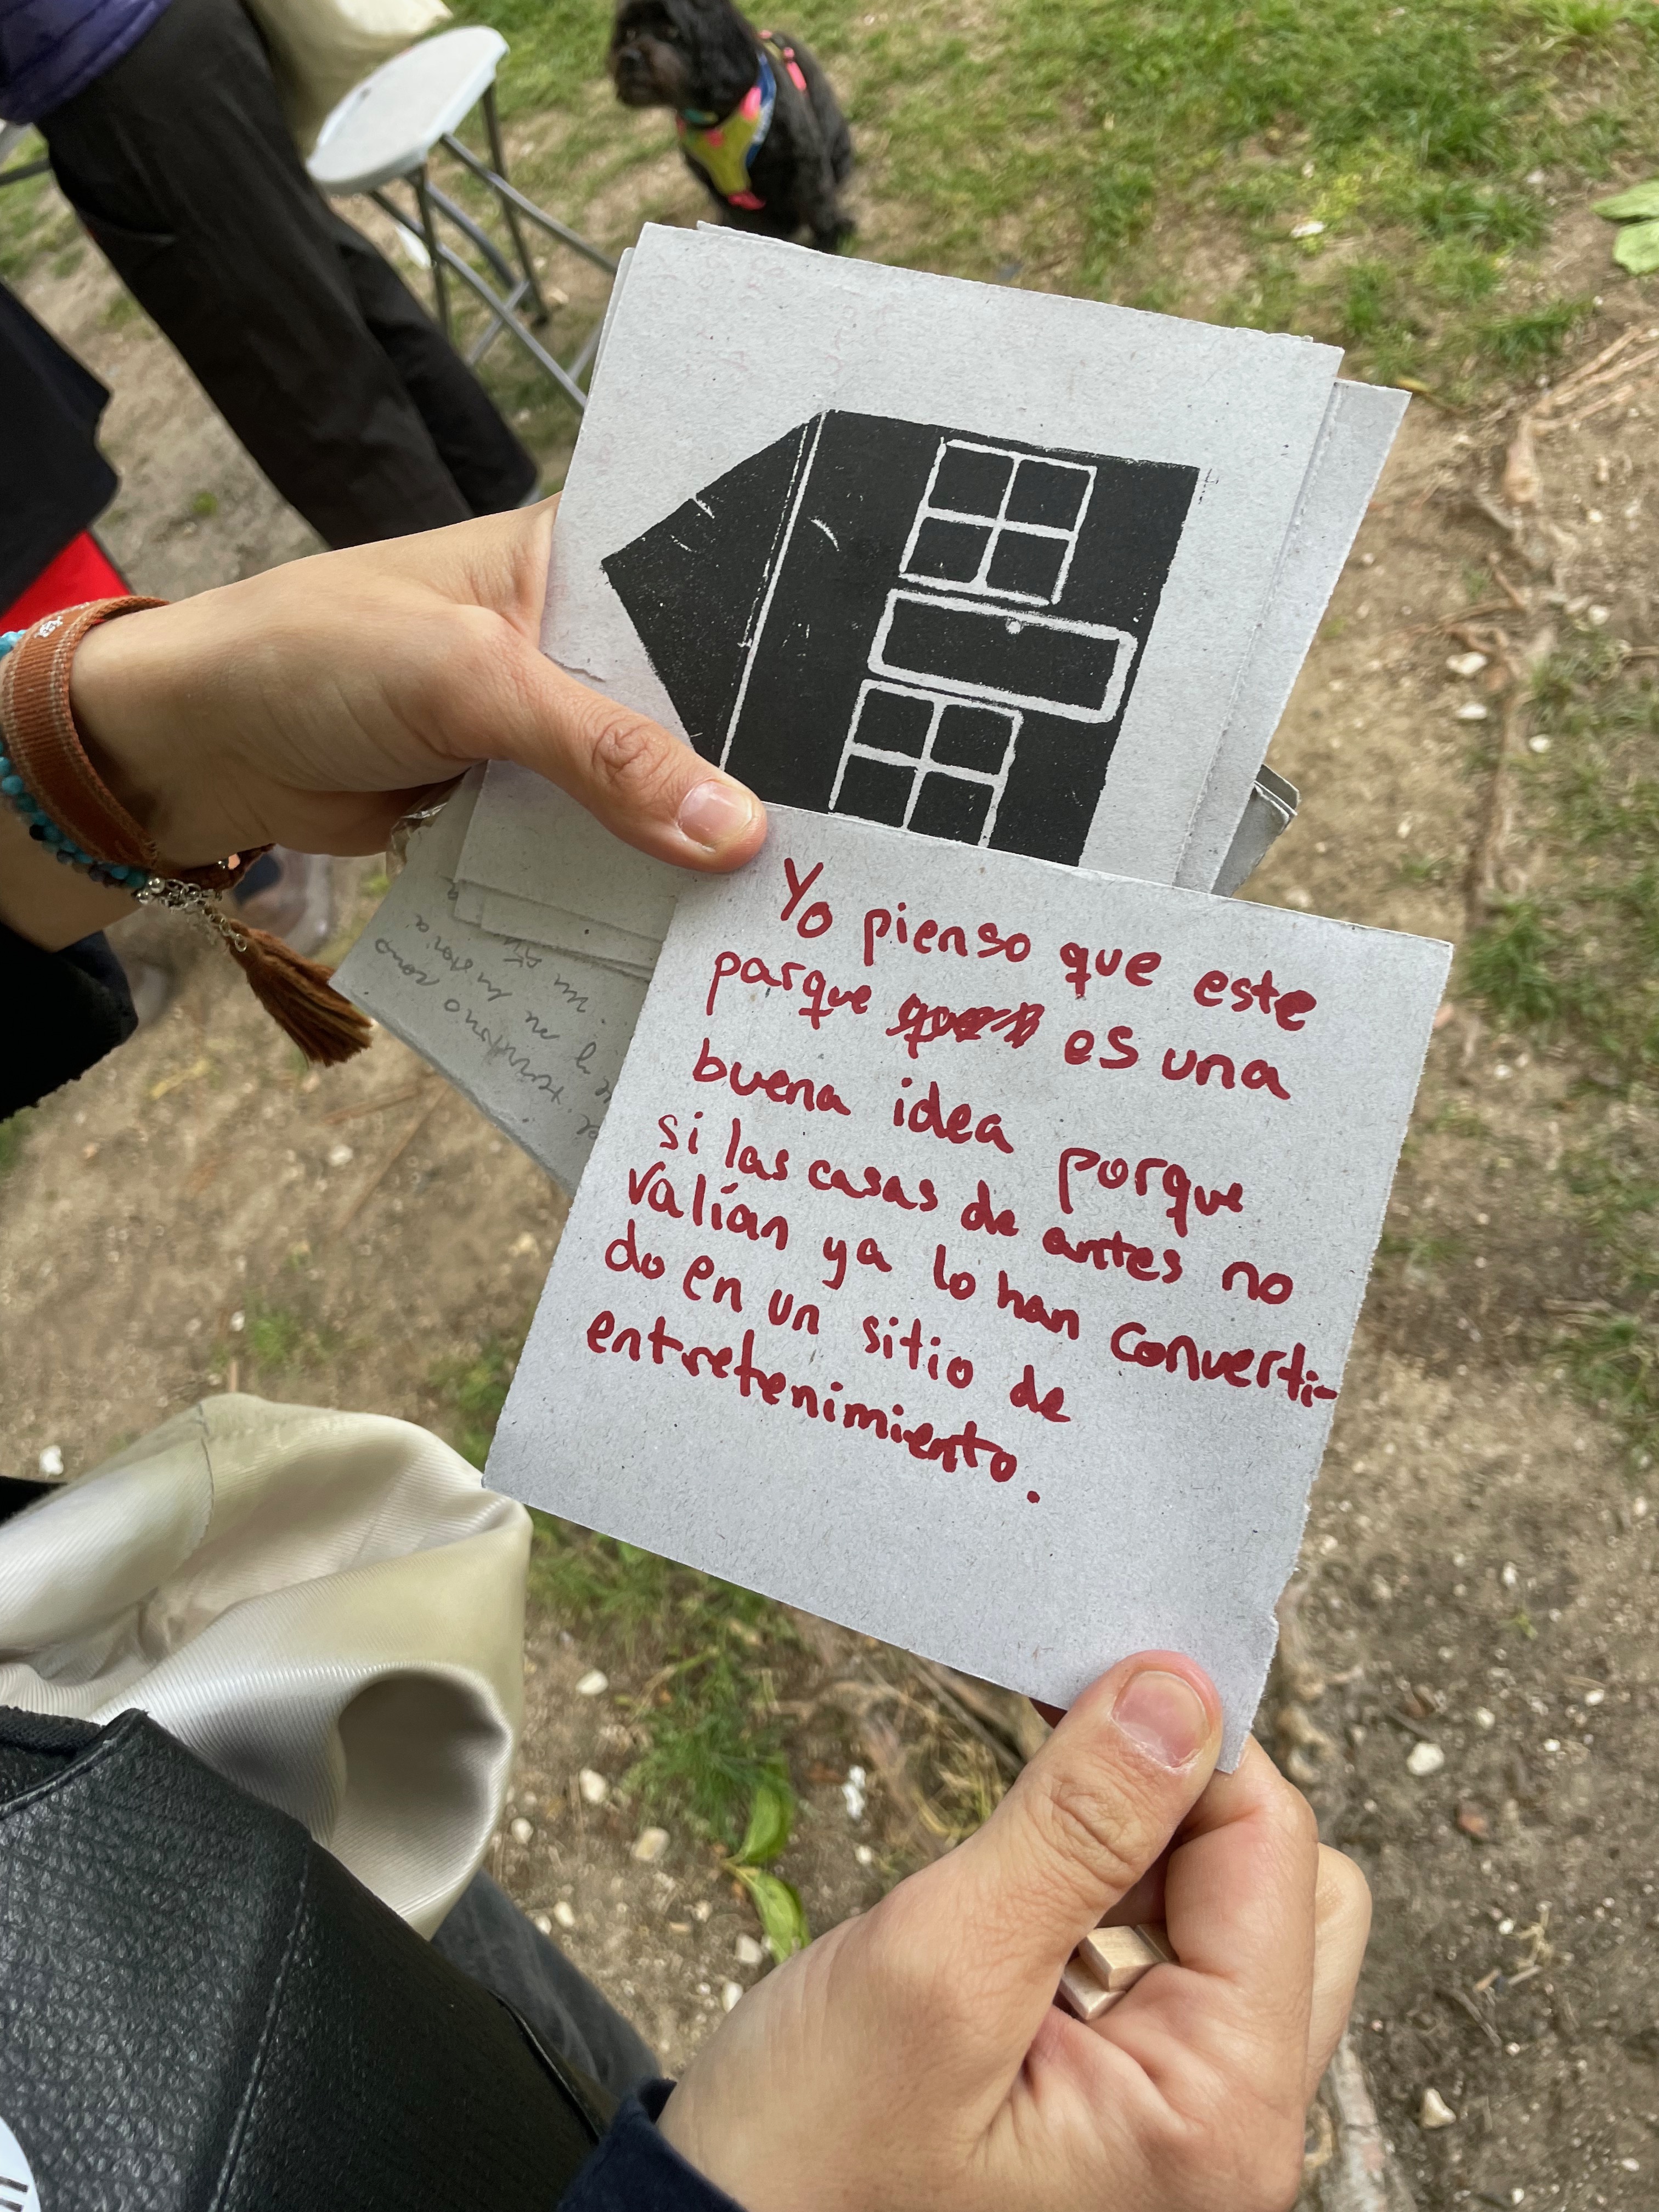 Yo pienso que este
parque es una
buena idea porque
si las casas de antes no
valían ya lo han converti-
do en un sitio de
entretenimiento.
el territorio como
y su historia